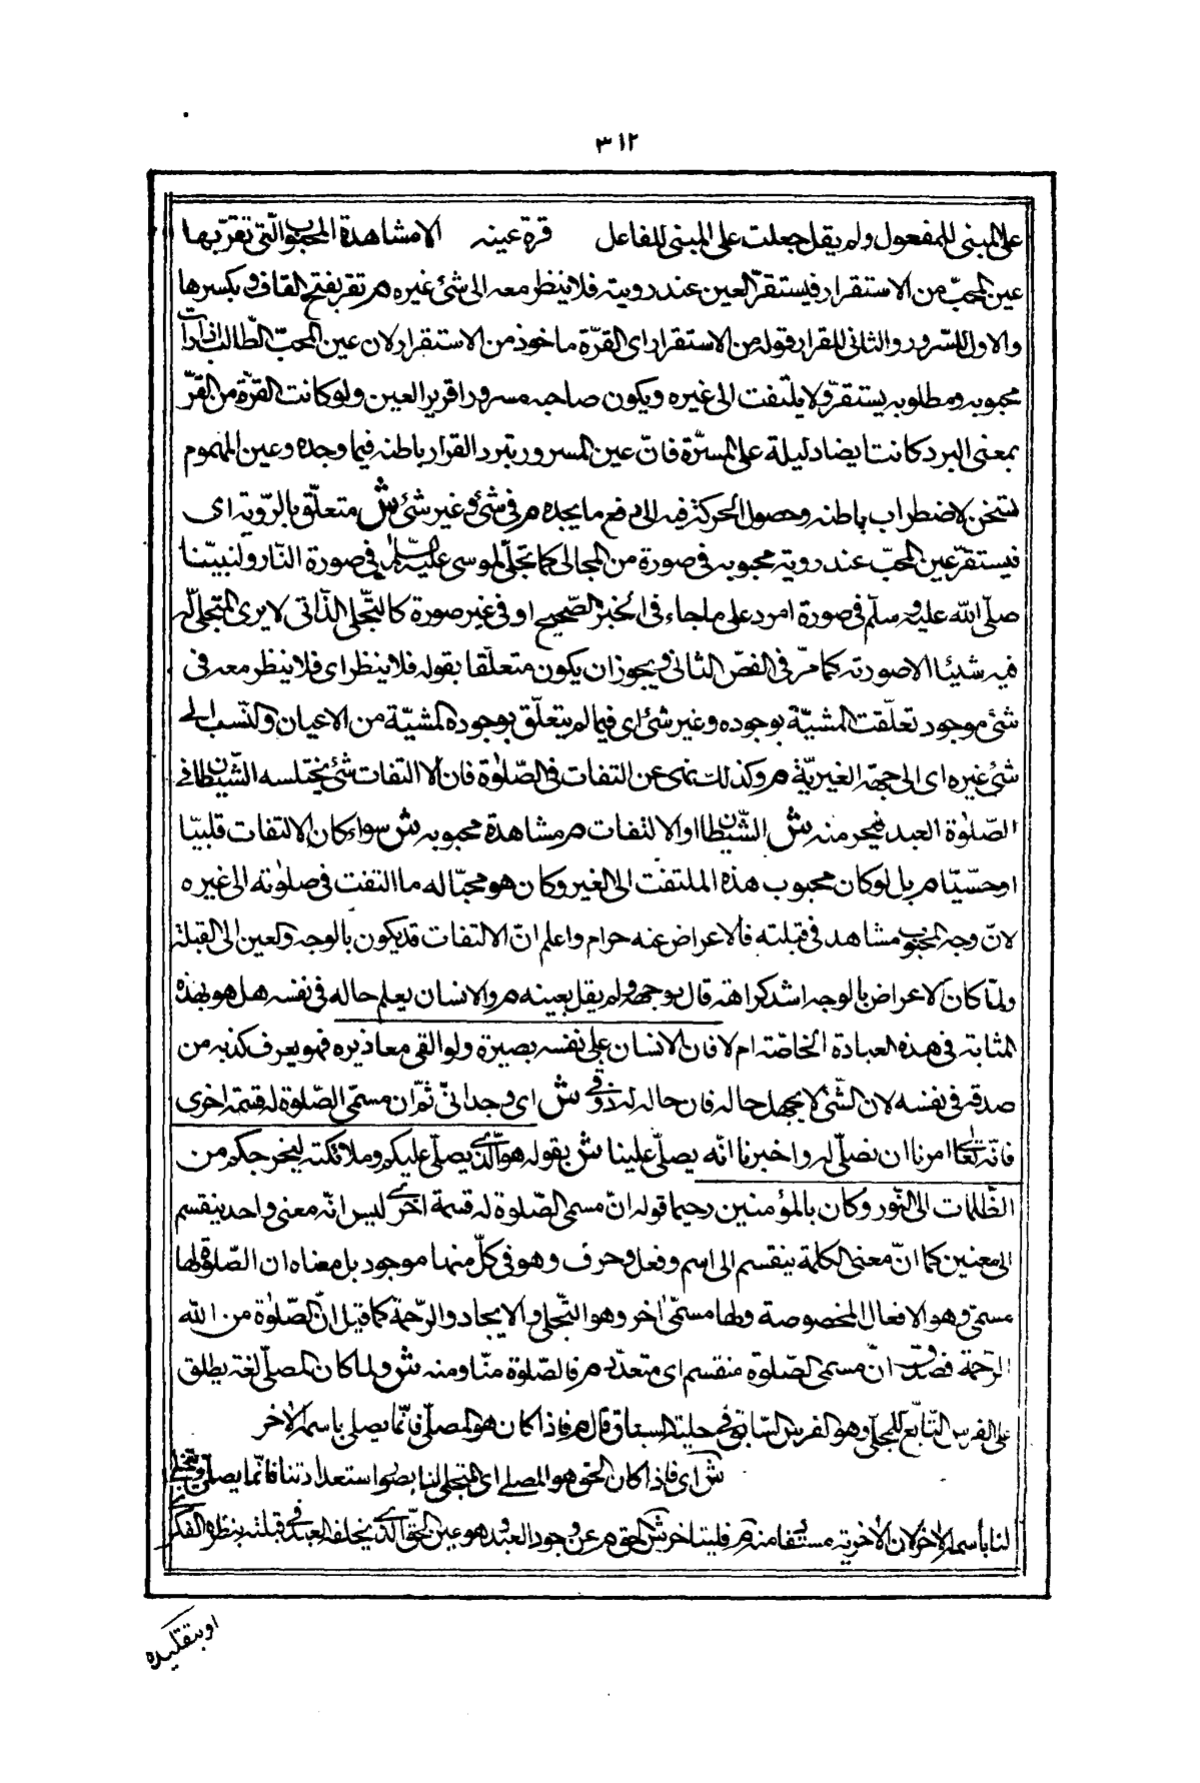 ٣١٢
على المبنى للمفعول ولم يقل جعلت على المبنى للفاعل قرة عينه الا مشاهدة المحبوب التى تقرّبها
عين المحبّ من الاستقرار فيستقرّ العين عند رويته فلا ينظر معه الى شئ غيره م تقر بفتح القاف وبكسرها
والاول للسّرور والثانى للقرار قوله من الاستقرار اى القرّة ماخوذ من الاستقرار لان عين المحبّ الطّالب اذا رات
محبوبه ومطلوبه يستقرّ ولا يلتفت الى غيره ويكون صاحبه مسرورا قرير العين ولو كانت القرّة من القرّ
بمعنى البرد كانت ايضا دليلة على المسرّة فانّ عين المسرور تبرد القرار باطنه فيما وجده وعين المهموم
تسخن لاضطراب باطنه وحصول الحركة فيه الى دفع ما يجده م فى شئ وغير شئ ش متعلّق بالرّوية اى
فيستقرّ عين المحبّ عند روية محبوبه فى صورة من المجالى كما تجلّى لموسى عليه السّلم فى صورة النّار ولنبيّنا
صلّى الله عليه وسلّم فى صورة امرد على ما جاء فى الخبر الصّحيح او فى غير صورة كالتّجلى الذّاتى لا يرى المتجلى له
فيه شيئا الا صورته كما مرّ فى الفصّ الثانى ويجوز ان يكون متعلّقا بقوله فلا ينظر اى فلا ينظر معه فى
شئ موجود تعلّقت المشيّة بوجوده وغير شئ اى فيما لم يتعلّق بوجوده المشيّة من الاعيان والنّسب الى
شئ غيره اى الى جهة الغيريّة م وكذلك نهى عن التفات فى الصّلوة فان الالتفات شئ يختلسه الشّيطان فى
الصّلوة العبد فيحرمنه ش الشّيطان او الالتفات م مشاهدة محبوبه ش سواء كان الالتفات قلبيّا
او حسّيّا م بل لو كان محبوب هذا الملتفت الى الغير وكان هو محبّا له ما التفت فى صلوته الى غيره
لانّ وجه المحبوب مشاهد فى قبلته فالاعراض عنه حرام واعلم انّ الالتفات قد يكون بالوجه والعين الى القبلة
ولمّا كان الاعراض بالوجه اشد كراهة قال بوجهه ولم يقل بعينه م والانسان يعلم حاله فى نفسه هل هو بهذه
المثابة فى هذه العبادة الخاصّة ام لا فان الانسان على نفسه بصيرة ولو القى معاذيره فهو يعرف كذبه من
صدقه فى نفسه لان الشّئ لا يجهل حاله فان حاله له ذوقى ش اى وجدانىّ ثمّ ان مسمّى الصّلوة له قسمة اخرى
فانّه تعالى امرنا ان نصلّى له واخبرنا انّه يصلّى علينا ش بقوله هو الّذى يصلّى عليكم وملائكته ليخرجكم من
الظّلمات الى النّور وكان بالمؤمنين رحيما قوله انّ مسمى الصّلوة له قسمة اخرى ليس انّه معنى واحد ينقسم
الى معنين كما انّ معنى الكلمة ينقسم الى اسم وفعل وحرف وهو فى كلّ منها موجود بل معناه ان الصّلوة لها
مسمّى وهو الافعال المخصوصة ولها مسمّى اخر وهو التّجلى والايجاد والرّحمة كما قيل انّ الصّلوة من الله
الرّحمة فصدق انّ مسمى الصّلوة منقسم اى متعدّد م فالصّلوة منّا ومنه ش ولما كان المصلّى لغة يطلق
على الفرس التّابع للمجلّى وهو الفرس السّابق فى حلية السباق قال م فاذا كان هو المصلّى فانّما يصلى باسمه الاخر
ش اى فاذا كان الحق هو المصلى اى المتجلى لنا بصور استعداداتنا فانّما يصلى ويتجلى
لنا باسمه الاخر لان الاخرية مستفا منه م فيتاخر ش الحق م عن وجود العبد وهو عين الحقّ الّذى يخلقه العبد فى قبلته بنظره الفكرى
او بتقليده